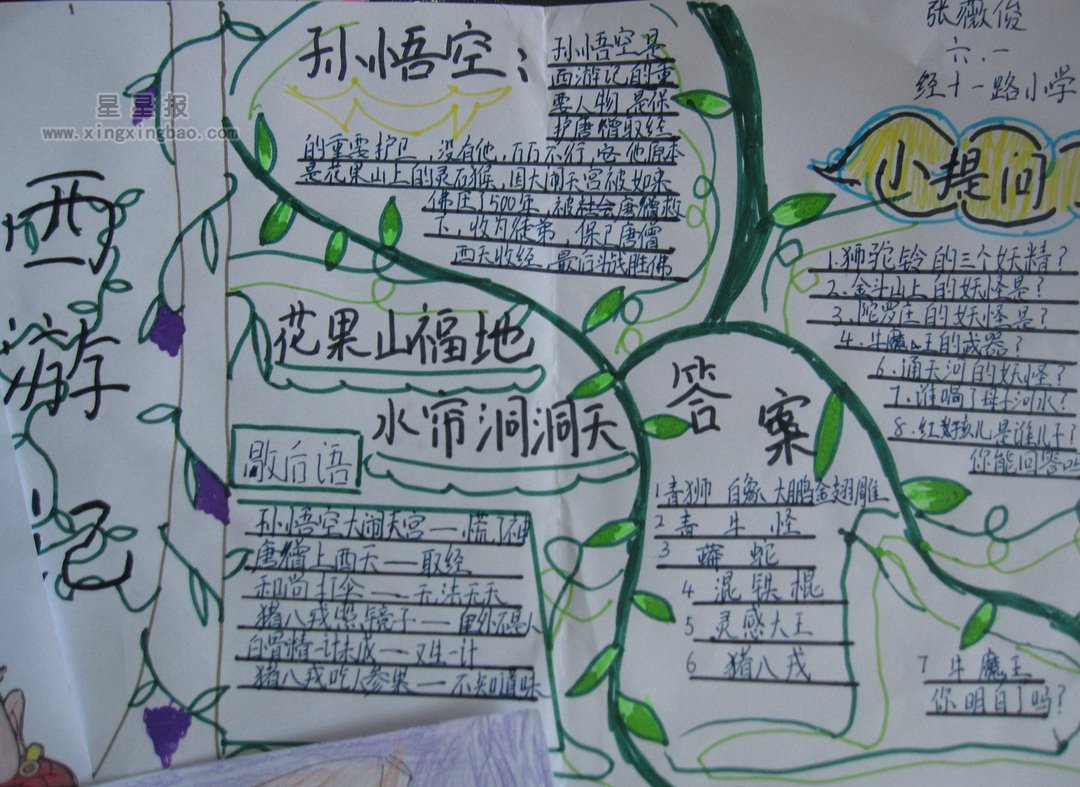 星星报
www.xingxingbao.com
西
游
记
孙悟空：
孙悟空是
西游记的重
要人物，是保
护唐僧取经
的重要护卫，没有他，万万不行，他原本
是花果山上的灵石猴，因大闹天宫被如来
佛压了500年，被社会唐僧救
下，收为徒弟，保卫唐僧
西天收经，最后斗战胜佛
花果山福地
水帘洞洞天
歇后语
孙悟空大闹天宫——慌了神
唐僧上西天——取经
和尚打伞——无法无天
猪八戒照镜子——里外不是人
白骨精一计未成——又生一计
猪八戒吃人参果——不知道味
张薇俊
六.一
经十一路小学
小提问
1.狮驼铃的三个妖精？
2.金斗山上的妖怪是？
3.陀罗庄的妖怪是？
4.牛魔王的武器？
6.通天河的妖怪？
7.谁喝了母子河水？
8.红孩儿是谁儿子？
你能回答吗
答案
1青狮 白象 大鹏金翅雕
2 青牛怪
3 蟒蛇
4 混铁棍
5 灵感大王
6 猪八戒
7 牛魔王
你明白了吗？